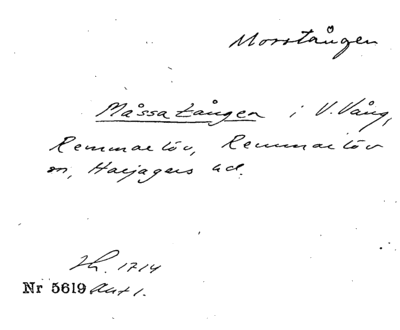 Morstången
Måssatången i V. Vång,
Remmarlöv, Remmarlöv
sn, Harjagers hd.
Lh. 1714
Nr 5619 Akt 1.